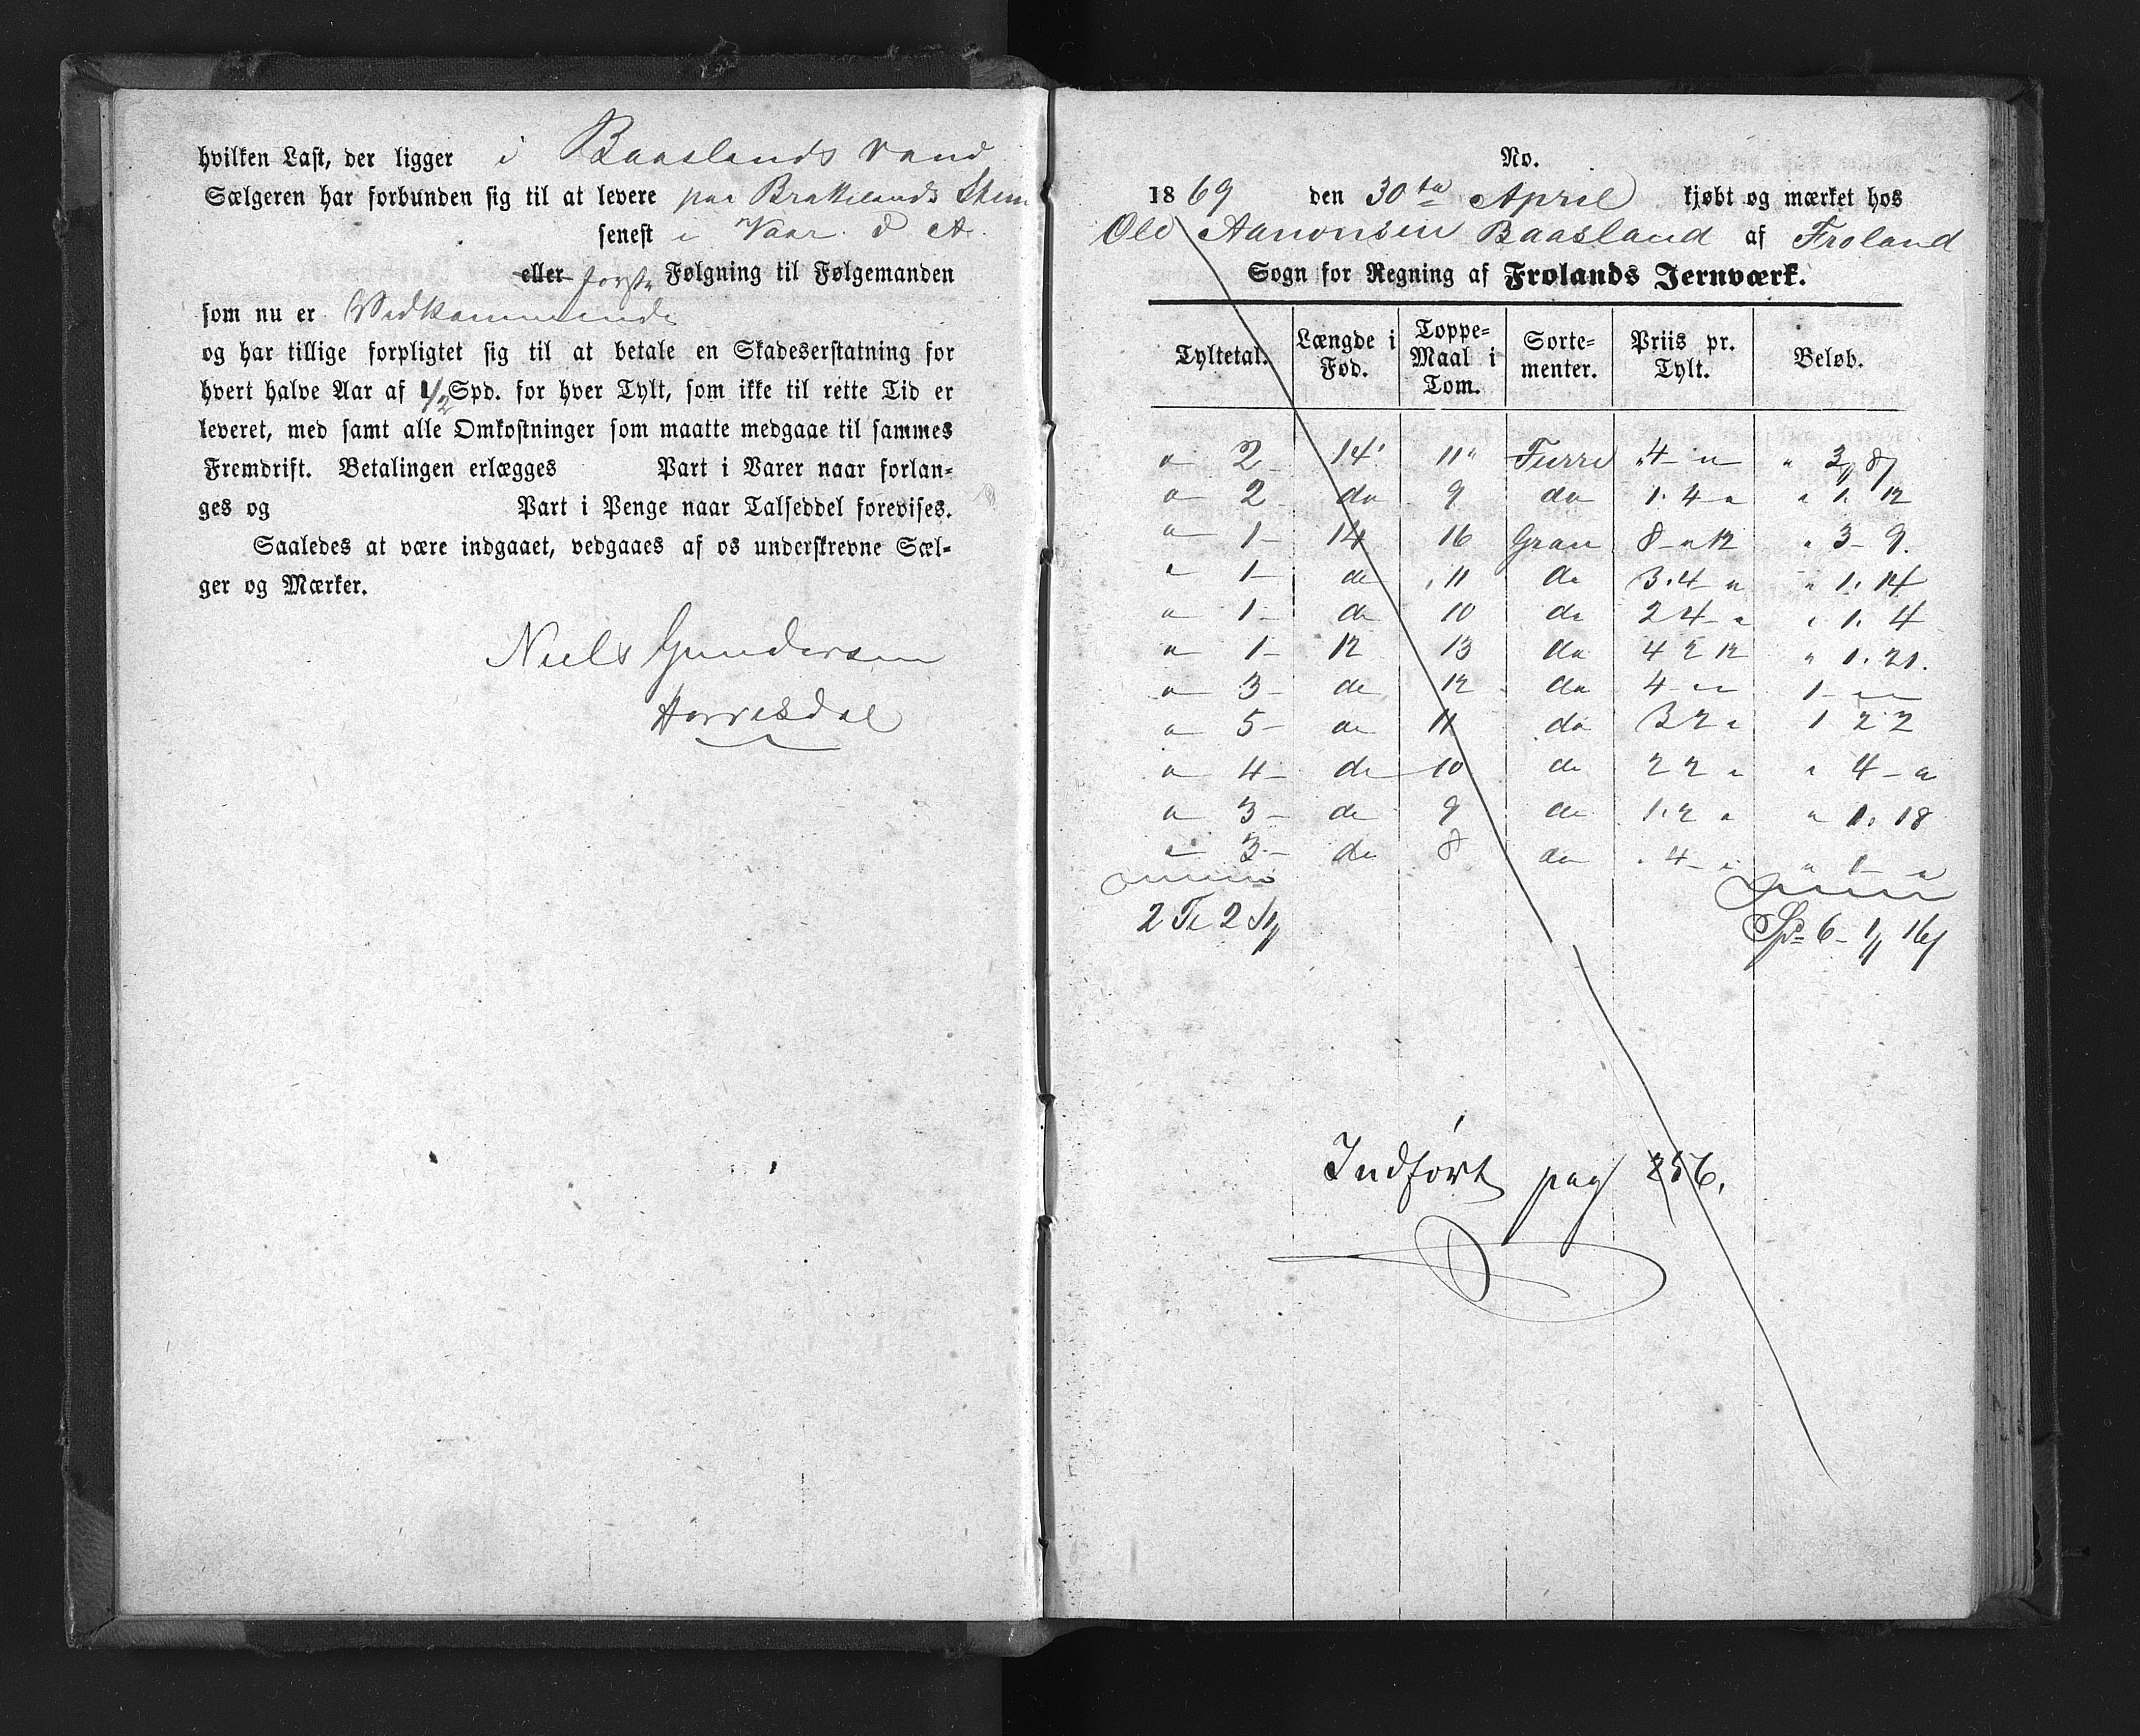 hvilken Last, der ligger i Baaslands Vand
Sælgeren har forbunden sig til at levere paa Brakelands Stem
senest i Vaar d A.
eller første Følgning til Følgemanden
som nu er Vedkommende
og har tillige forpligtet sig til at betale en Skadeserstatning for
hvert halve Aar af 1/2 Spd. for hver Tylt, som ikke til rette Tid er
leveret, med samt alle Omkostninger som maatte medgaae til sammes
Fremdrift. Betalingen erlægges Part i Varer naar forlan-
ges og Part i Penge naar Talseddel forevises.
Saaledes at være indgaaet, vedgaaes af os underskrevne Sæl-
ger og Mærker.
Niels Gundersen
Hørresdal
No.
1869 den 30te April kjøbt og mærket hos
Ole Aanonsen Baasland af Froland
Sogn for Regning af Frolands Jernværk.
Tyltetal. Længde i Fod. Toppe-Maal i Tom. Sorte-menter. Priis pr. Tylt. Beløb.
" 2 - 14' 11" Furre " 4 - " " 3 " 8
" 2 do 9 do 1. 4 - " " 1. 12
" 1 - 14 16 Gran 8 - " 12 " 3 - 9.
" 1 - do 11 do 3. 4 - " " 1. 14
" 1 - do 10 do 2 4 - " " 1. 4
" 1 - 12 13 do 4 2 12 " 1. 21.
" 3 - do 12 do 4 - " " 1 - " "
" 5 - do 11 do 3 2 " 1 2 2
" 4 - do 10 do 2 2 " " 4 - "
" 3 - do 9 do 1. 2 " " 1. 18
" 3 - do 8 do " 4 - " " 1 - "
2 T 2 Spd 6 - 1 " 16
Indført pag 256.